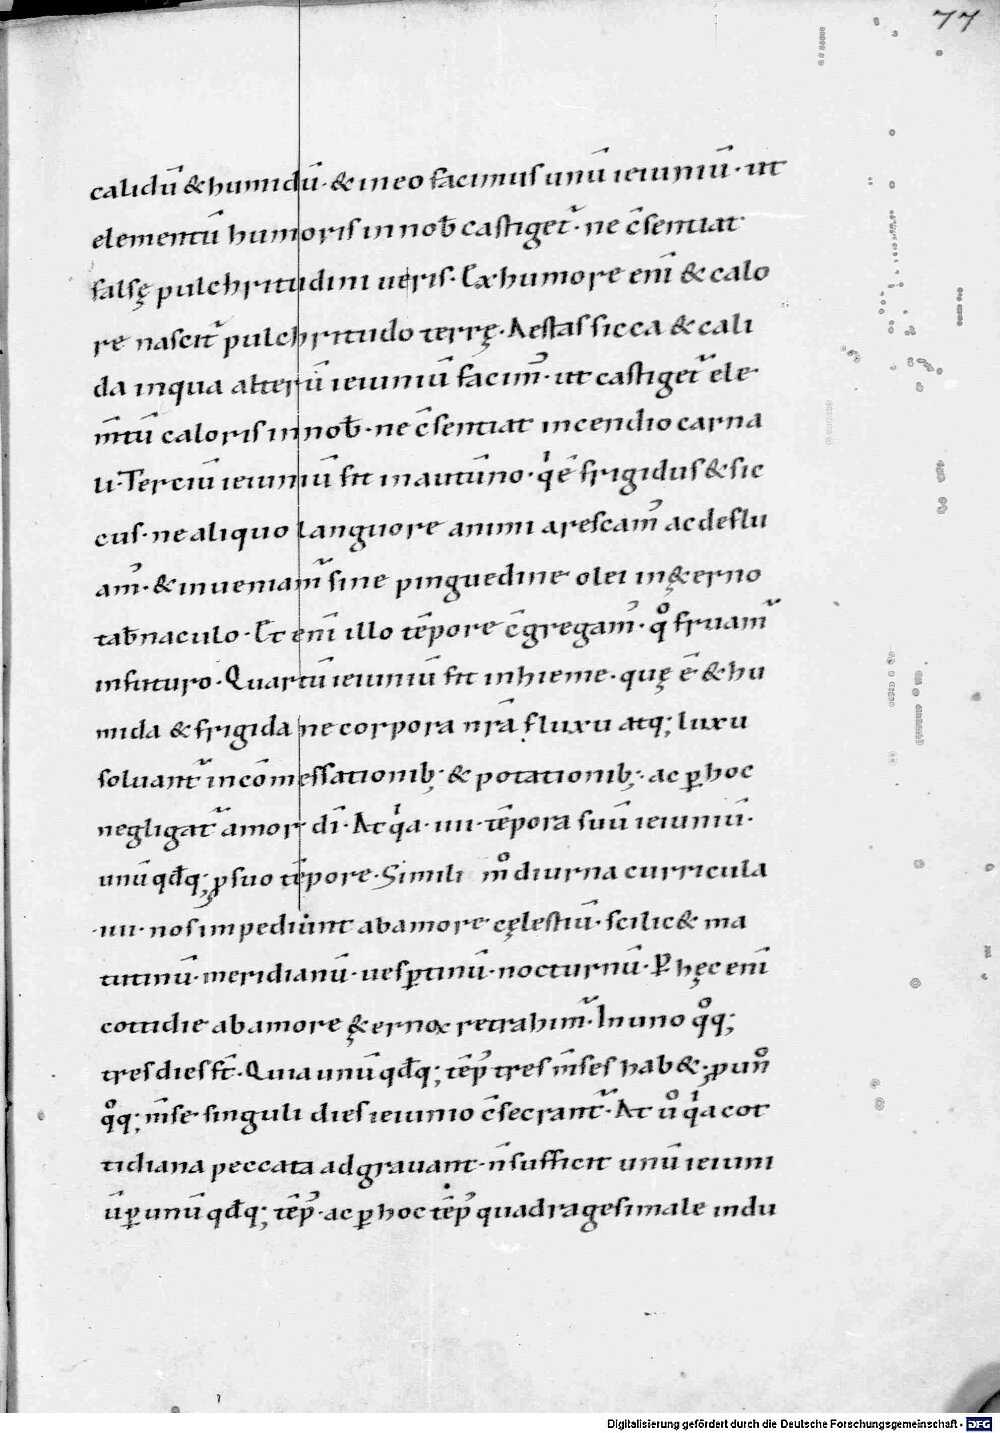 77
calidū & humidū · & in eo facimus unū ieiuniū · ut
elementū humoris in nob̄ castiget᷑ · ne c̄sentiat
falsę pulchritudini ueris · Ex humore eni̅ & calo
re nascit᷑ pulchritudo terrę · Aestas sicca & cali
da in qua alterū ieiuniū facim᷒ · ut castiget᷑ ele
m̄tū caloris in nob̄ · ne c̄sentiat incendio carna
li · Terciū ieiuniū fit in autūno · qͥ ē frigidus & sic
cus · ne aliquo languore animi arescam᷒ ac deflu
am᷒ · & inueniam᷑ sine pinguedine olei in &̨erno
tab̄naculo · Et eni̅ illo tēpore c̄gregam᷒ · qͦ fruam᷑
in futuro · Quartū ieiuniū fit in hieme · quę ē & hu
mida & frigida ne corpora nr̄a fluxu atq; luxu
soluant᷑ in cōmessationib; & potationib; · ac ꝑ hoc
negligat᷑ amor dī · At qͥa · iiii · tēpora suū ieiuniū ·
unū qd̄q; ꝑ suo tēpore · Simili mͦ diurna curricula
· iiii · nos impediunt ab amore cęlestiū · scilic& ma
tutinū · meridianū · uesꝑtinū · nocturnū · P̱ hęc eni̅
cottidie ab amore &̨ernox retrahim᷑ · In uno qͦq;
tres dies st̄ · Quia unū qd̄q; tēp᷒ tres m̄ses hab& · ꝑ unͦ
qͦq; m̄se singuli dies ieiunio c̄secrant᷑ · At uͦ qͥa cot
tidiana peccata adgrauant · n̄ sufficit unū ieiuni
ū ꝑ unū qd̄q; tēp᷒ · ac ꝑ hoc tēp᷒ quadragesimale indu
Digitalisierung gefördert durch die Deutsche Forschungsgemeinschaft - DFG